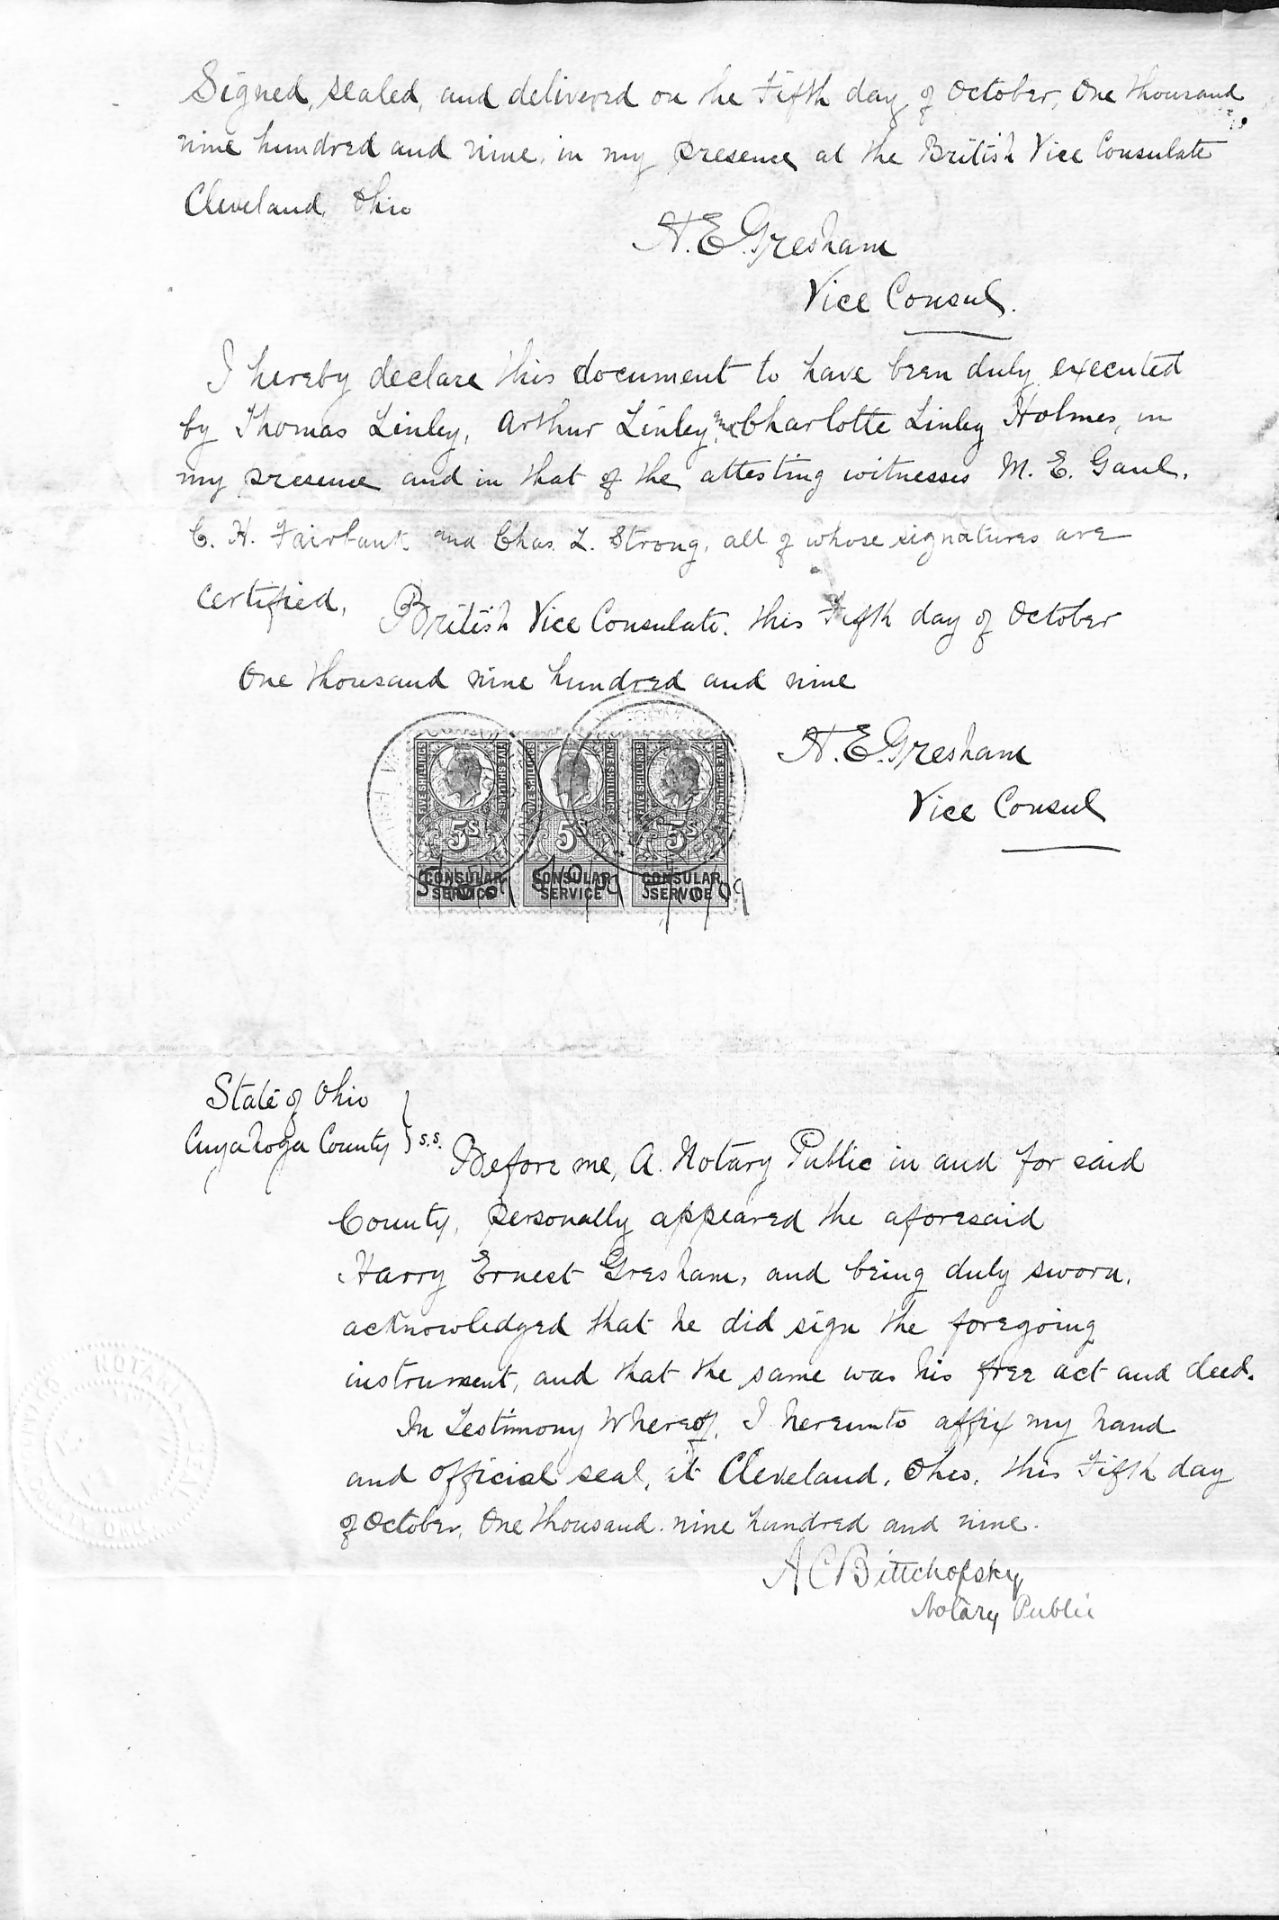 Signed, sealed, and delivered on the Fifth day of October, One thousand
nine hundred and nine, in my presence at the British Vice Consulate
Cleveland, Ohio
H. E. Gresham
Vice Consul.
I hereby declare this document to have been duly executed
by Thomas Linley, Arthur Linley, and Charlotte Linley Holmes, in
my presence and in that of the attesting witnesses M. E. Gaul,
C. H. Fairbank and Chas. L. Strong, all of whose signatures are
certified, British Vice Consulate. this Fifth day of October
One thousand nine hundred and nine
H. E. Gresham
Vice Consul
FIVE SHILLINGS FIVE SHILLINGS FIVE SHILLINGS FIVE SHILLINGS FIVE SHILLINGS FIVE SHILLINGS
5s 5s 5s
CONSULAR CONSULAR CONSULAR
SERVICE SERVICE SERVICE
5/10/09 5/10/09 5/10/09
State of Ohio
Cuyahoga County } s.s.
Before me, A. Notary Public in and for said
County, personally appeared the aforesaid
Harry Ernest Gresham, and being duly sworn,
acknowledged that he did sign the foregoing
instrument, and that the same was his free act and deed.
In Testimony Whereof, I hereunto affix my hand
and official seal, at Cleveland, Ohio, this Fifth day
of October, One thousand nine hundred and nine.
A C Bittchofsky
Notary Public
NOTARIAL SEAL
OHIO